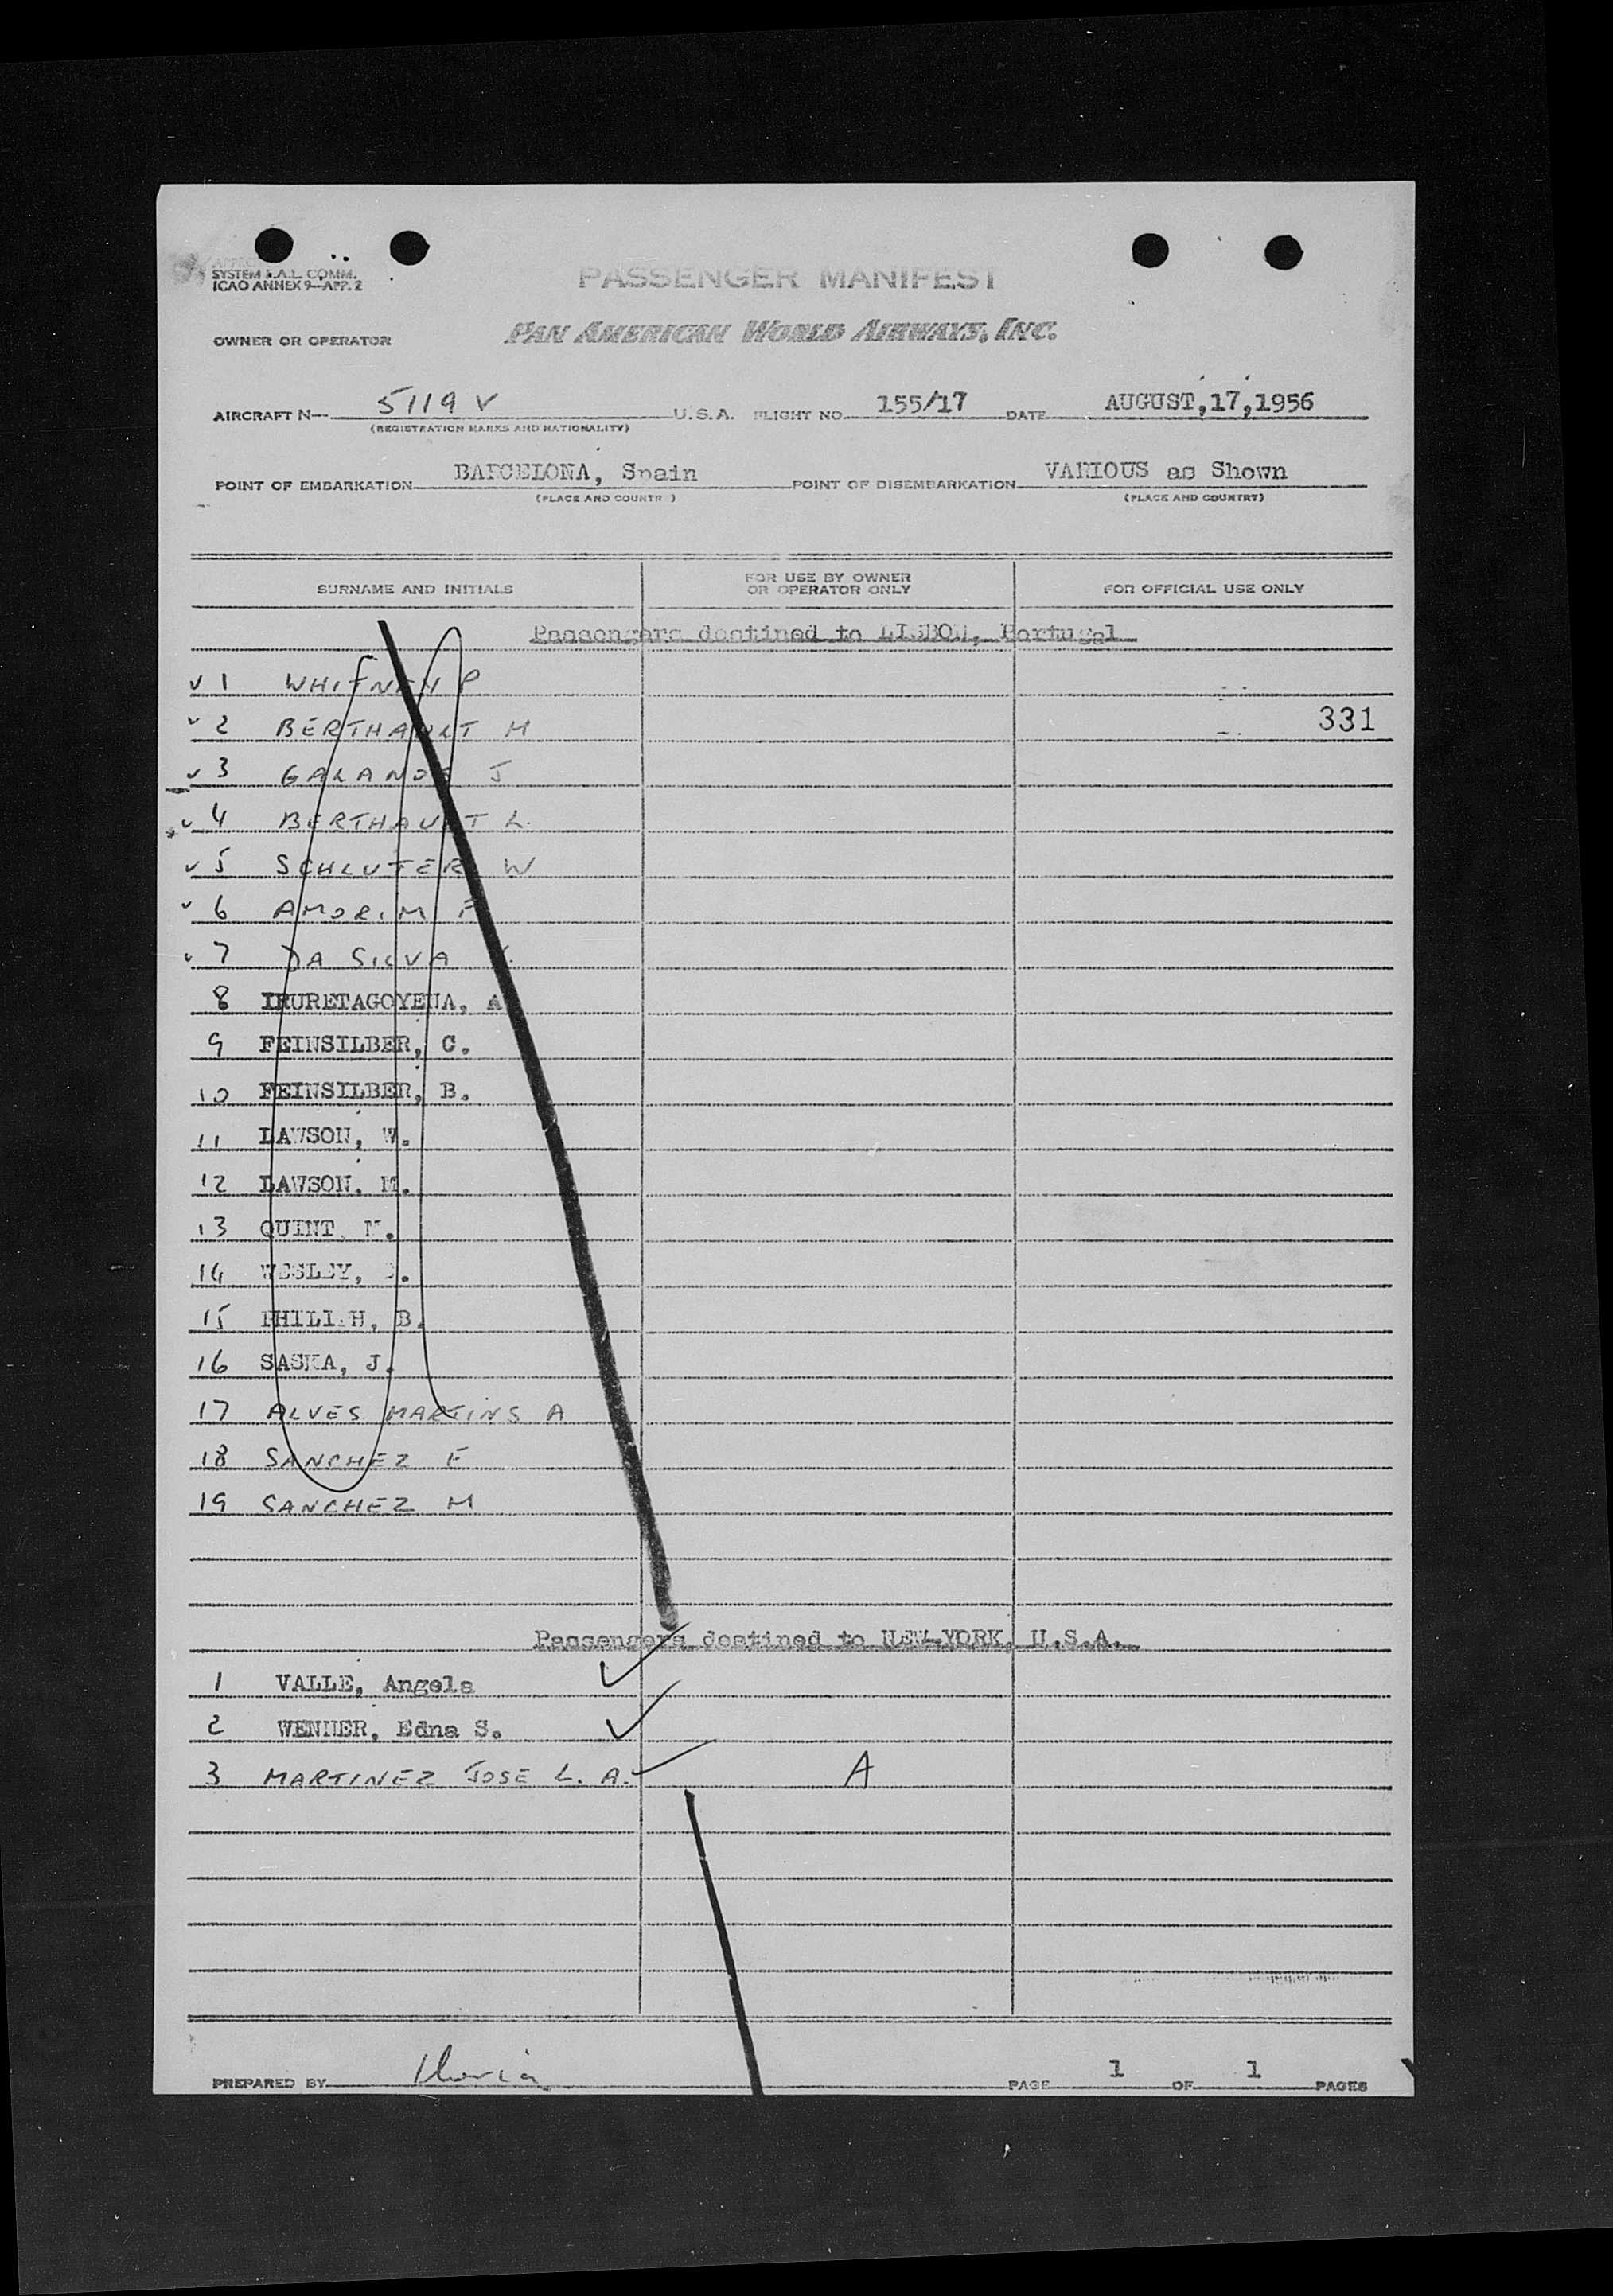 SYSTEM F.A.L. COMM.
ICAO ANNEX 9—APP. 2
PASSENGER MANIFEST
OWNER OR OPERATOR PAN AMERICAN WORLD AIRWAYS, INC.
AIRCRAFT N— 5119 V U.S.A. FLIGHT NO. 155/17 DATE AUGUST,17,1956
(REGISTRATION MARKS AND NATIONALITY)
POINT OF EMBARKATION BARCELONA, Spain POINT OF DISEMBARKATION VARIOUS as Shown
(PLACE AND COUNTRY) (PLACE AND COUNTRY)
SURNAME AND INITIALS FOR USE BY OWNER OR OPERATOR ONLY FOR OFFICIAL USE ONLY
Passengers destined to LISBON, Portugal
1 WHITNEY P
2 BERTHAULT M 331
3 J
4 BERTHAULT L.
5 SCHLUTER W
6 AMORIM F
7 DA SILVA
8 IRURETAGOYENA, A
9 FEINSILBER, C.
10 FEINSILBER, B.
11 LAWSON, W.
12 LAWSON, M.
13 QUINT M.
14 WESLEY,
15 B.
16 SASKA, J.
17 ALVES MARTINS A
18 SANCHEZ F
19 SANCHEZ M
Passengers destined to NEW-YORK, U.S.A.
1 VALLE, Angela
2 Edna S.
3 MARTINEZ JOSE L. A. A
PREPARED BY PAGE 1 OF 1 PAGES